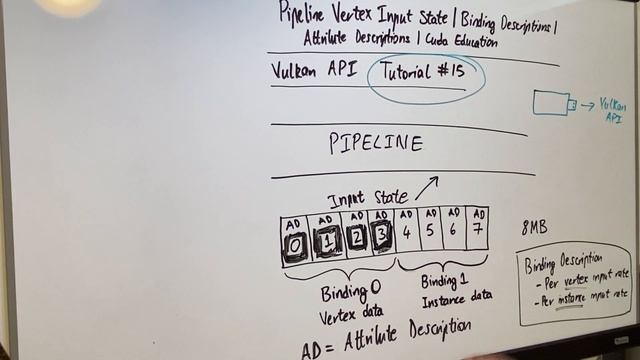 Pipeline Vertex Input State | Binding Descriptions |
Attribute Descriptions | Cuda Education
Vulkan API Tutorial #15
Vulkan
API
PIPELINE
Input State
AD AD AD AD AD AD AD AD
0 1 2 3 4 5 6 7
8MB
Binding 0
Vertex data
Binding 1
Instance data
Binding Description
- Per vertex input rate
- Per instance input rate
AD = Attribute Description